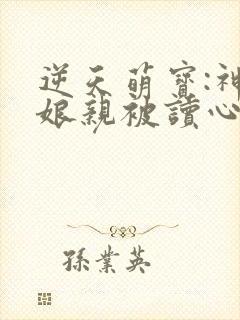 逆天萌寶:神
娘親被讀心
孫業英